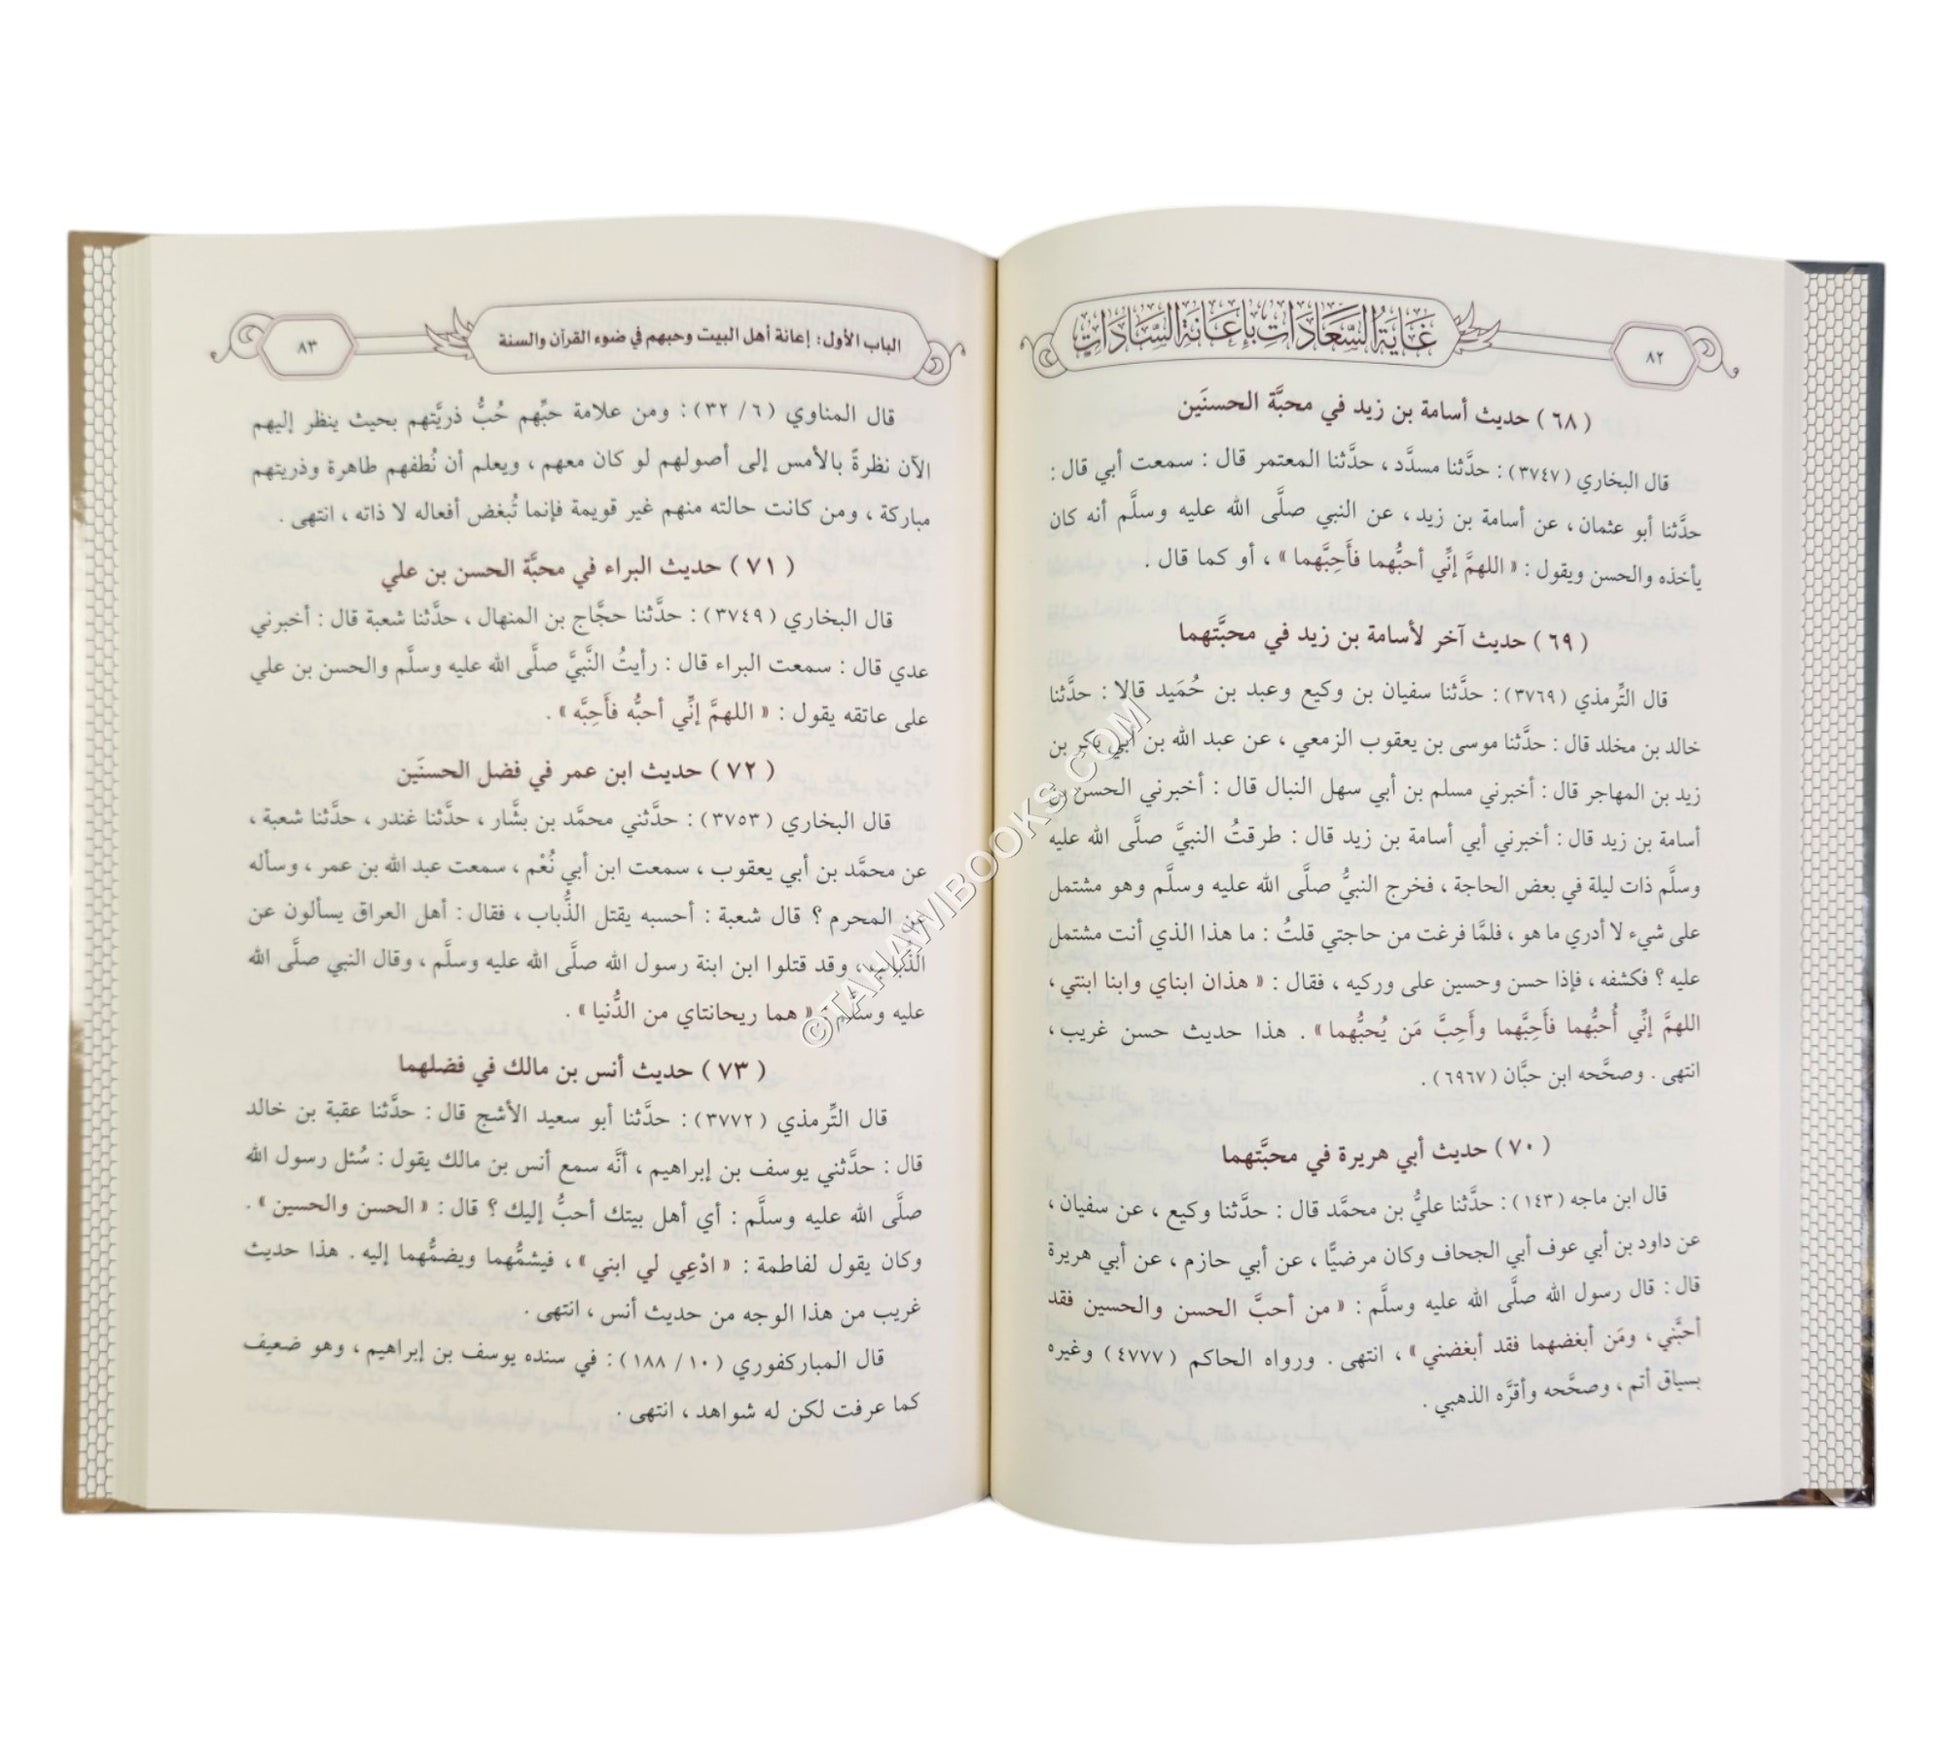 ٨٢
غَايَةُ السَّعَادَاتِ بِإِعَانَةِ السَّادَاتِ
( ٦٨ ) حديث أسامة بن زيد في محبَّة الحسنَين
قال البخاري (٣٧٤٧) : حدَّثنا مسدَّد ، حدَّثنا المعتمر قال : سمعت أبي قال :
حدَّثنا أبو عثمان ، عن أسامة بن زيد ، عن النبي صلَّى الله عليه وسلَّم أنه كان
يأخذه والحسن ويقول : « اللهمَّ إنِّي أحبُّهما فأَحِبَّهما » ، أو كما قال .
( ٦٩ ) حديث آخر لأسامة بن زيد في محبَّتهما
قال التِّرمذي (٣٧٦٩) : حدَّثنا سفيان بن وكيع وعبد بن حُمَيد قالا : حدَّثنا
خالد بن مخلد قال : حدَّثنا موسى بن يعقوب الزمعي ، عن عبد الله بن أبي بكر بن
زيد بن المهاجر قال : أخبرني مسلم بن أبي سهل النبال قال : أخبرني الحسن بن
أسامة بن زيد قال : أخبرني أبي أسامة بن زيد قال : طرقتُ النبيَّ صلَّى الله عليه
وسلَّم ذات ليلة في بعض الحاجة ، فخرج النبيُّ صلَّى الله عليه وسلَّم وهو مشتمل
على شيء لا أدري ما هو ، فلمَّا فرغت من حاجتي قلتُ : ما هذا الذي أنت مشتمل
عليه ؟ فكشفه ، فإذا حسن وحسين على وركيه ، فقال : « هذان ابناي وابنا ابنتي ،
اللهمَّ إنِّي أُحبُّهما فأَحِبَّهما وأَحِبَّ مَن يُحبُّهما » . هذا حديث حسن غريب ،
انتهى . وصحَّحه ابن حبَّان (٦٩٦٧) .
( ٧٠ ) حديث أبي هريرة في محبَّتهما
قال ابن ماجه (١٤٣) : حدَّثنا عليُّ بن محمَّد قال : حدَّثنا وكيع ، عن سفيان ،
عن داود بن أبي عوف أبي الجحاف وكان مرضيًّا ، عن أبي حازم ، عن أبي هريرة
قال : قال رسول الله صلَّى الله عليه وسلَّم : « من أحبَّ الحسن والحسين فقد
أحبَّني ، ومَن أبغضهما فقد أبغضني » ، انتهى . ورواه الحاكم (٤٧٧٧) وغيره
بسياق أتم ، وصحَّحه وأقرَّه الذهبي .
الباب الأول: إعانة أهل البيت وحبهم في ضوء القرآن والسنة
٨٣
قال المناوي (٦ / ٣٢) : ومن علامة حبِّهم حُبُّ ذريَّتهم بحيث ينظر إليهم
الآن نظرةً بالأمس إلى أصولهم لو كان معهم ، ويعلم أن نُطفهم طاهرة وذريتهم
مباركة ، ومن كانت حالته منهم غير قويمة فإنما تُبغض أفعاله لا ذاته ، انتهى .
( ٧١ ) حديث البراء في محبَّة الحسن بن علي
قال البخاري (٣٧٤٩) : حدَّثنا حجَّاج بن المنهال ، حدَّثنا شعبة قال : أخبرني
عدي قال : سمعت البراء قال : رأيتُ النَّبيَّ صلَّى الله عليه وسلَّم والحسن بن علي
على عاتقه يقول : « اللهمَّ إنِّي أحبُّه فأَحِبَّه » .
( ٧٢ ) حديث ابن عمر في فضل الحسنَين
قال البخاري (٣٧٥٣) : حدَّثني محمَّد بن بشَّار ، حدَّثنا غندر ، حدَّثنا شعبة ،
عن محمَّد بن أبي يعقوب ، سمعت ابن أبي نُعْم ، سمعت عبد الله بن عمر ، وسأله
عن المحرم ؟ قال شعبة : أحسبه يقتل الذُّباب ، فقال : أهل العراق يسألون عن
الذُّباب ، وقد قتلوا ابن ابنة رسول الله صلَّى الله عليه وسلَّم ، وقال النبي صلَّى الله
عليه وسلَّم : « هما ريحانتاي من الدُّنيا » .
( ٧٣ ) حديث أنس بن مالك في فضلهما
قال التِّرمذي (٣٧٧٢) : حدَّثنا أبو سعيد الأشج قال : حدَّثنا عقبة بن خالد
قال : حدَّثني يوسف بن إبراهيم ، أنَّه سمع أنس بن مالك يقول : سُئل رسول الله
صلَّى الله عليه وسلَّم : أي أهل بيتك أحبُّ إليك ؟ قال : « الحسن والحسين » .
وكان يقول لفاطمة : « ادْعِي لي ابني » ، فيشمُّهما ويضمُّهما إليه . هذا حديث
غريب من هذا الوجه من حديث أنس ، انتهى .
قال المباركفوري (١٠ / ١٨٨) : في سنده يوسف بن إبراهيم ، وهو ضعيف
كما عرفت لكن له شواهد ، انتهى .
©TAHAWIBOOKS.COM